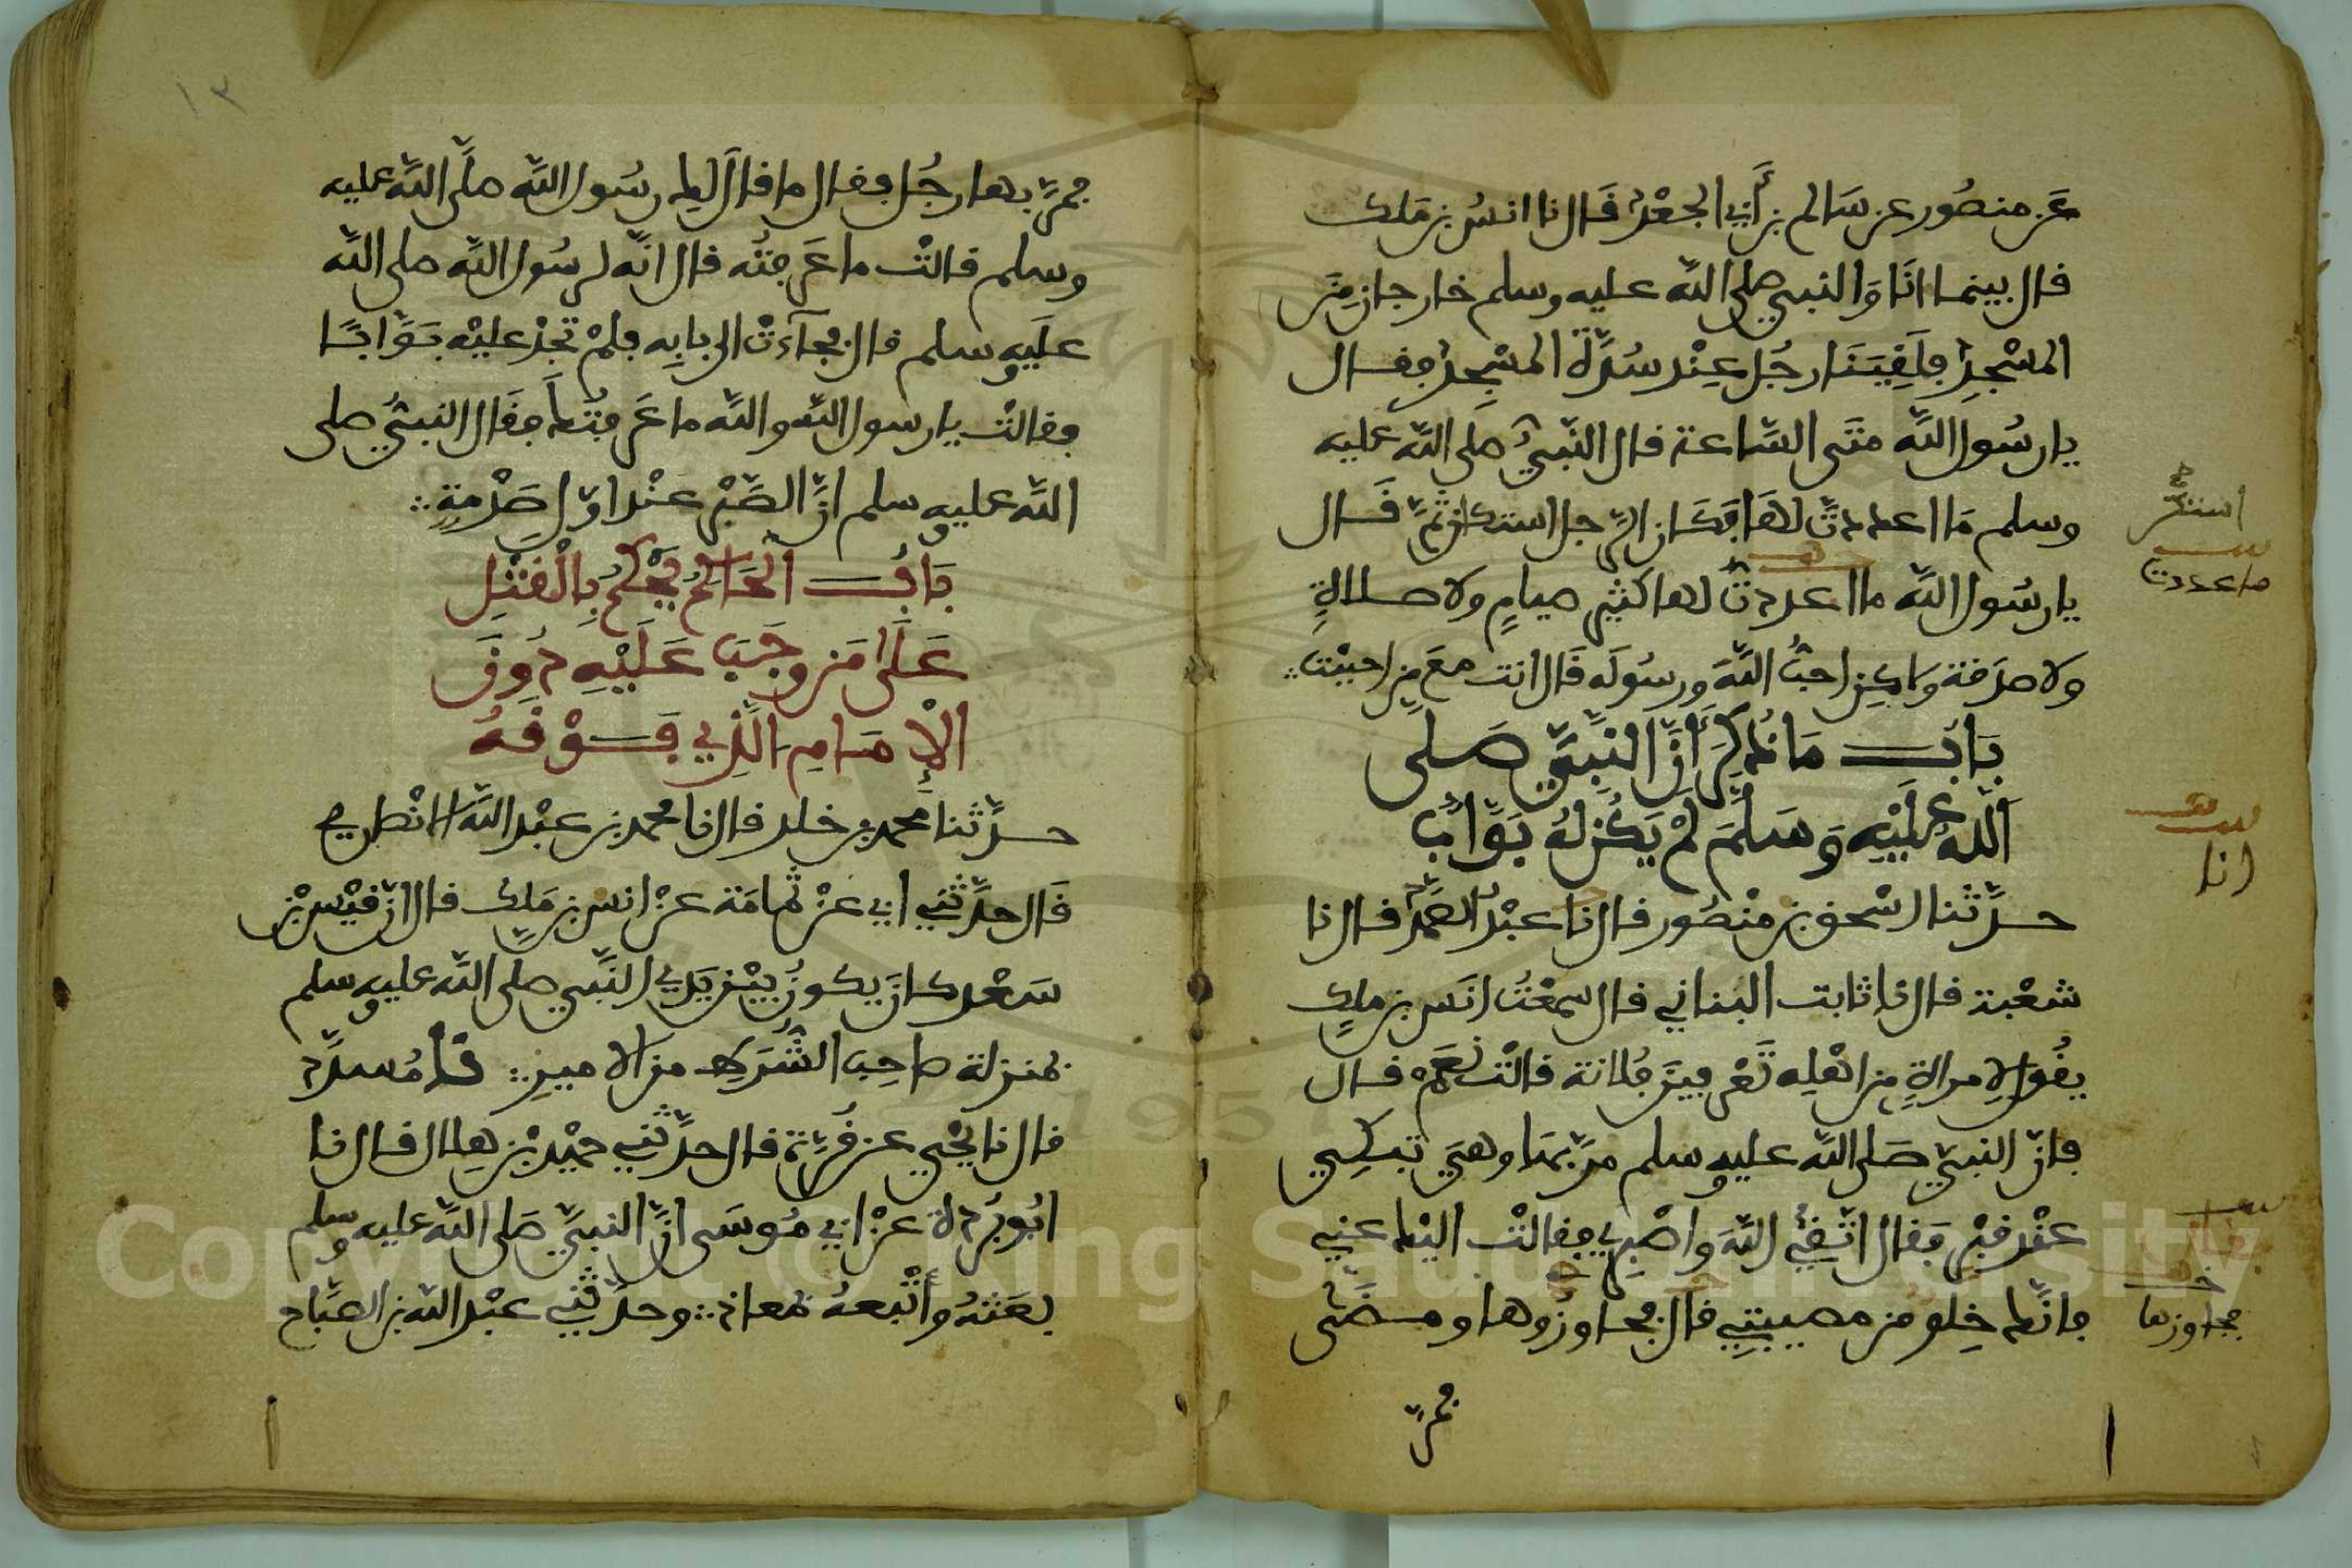 عَن منصُور عن سَالم بن أَبي الجعْد قَال نا انسُ بن مَلك
قال بينما انَا وَالنبي صلى الله عليه وسلم خارجان مِنَ
المسْجِدِ فلَقِيَنَا رجُل عِنْد سُدَّةِ المسْجِدِ فقال
يا رسُول اللَّه متَى السَّاعة قال النَّبيُّ صلى اللَّه عليه
وسلم مَا اعددتَّ لهَا فكَان الرَّجل استكان ثمَّ قَال
يا رسُول اللَّه ما اعددتُّ لها كثيرَ صيامٍ ولا صلاةٍ
ولا صدَقة ولكِن احبُّ اللَّهَ ورسُولَه قَال انت معَ مَن احببْت
بَابُ مَا ذُكِرَ أَنَّ النبِيَّ صَلى
اللَّهُ عَلَيْهِ وَسَلَّمَ لَمْ يَكُن لهُ بَوَّابٌ
حدَّثنا اسْحق بن منْصُور قال نا عبْدُ الصَّمَدِ قال نا
شعْبة قال نا ثابت البناني قال سمعْتُ انَس بن ملكٍ
يقُول لِامراةٍ مِن اهْلِه تَعْرِفِينَ فُلانة قالتْ نعَمْ قال
فانَّ النبيَّ صَلى اللَّه عليه وسلم مرَّ بهَا وهيَ تبكِي
عنْد قبْرٍ فقال اتَّقِي اللَّهَ وَاصْبِرِي فقالتْ اليْك عنِي
فانَّك خِلو من مصيبتِي قال فجاوزُوها ومضَى
فمرَّ
استكن
ما عددت
انا
فقال
فجاوزها
١٣
فمرَّ بها رجُل فقال ما قال لكِ رسُول اللَّه صلَّى اللَّه عليه
وسلم قالتْ ما عَرفتُه قال انَّه لرسُول اللَّه صلى اللَّه
عليه وسلم قال فجآءتْ الى بابِه فلمْ تجِدْ عليْه بَوَّابًا
فقالتْ يا رسول اللَّه واللَّه ما عَرفتُك فقَال النبيُّ صلى
اللَّه عليه وسلم انَّ الصَّبْر عنْد اوّلِ صَدْمةٍ
بَابُ الحَاكِمُ يَحْكُمُ بِالْقتْلِ
عَلَى مَن وجَبَ عَلَيْهِ دُونَ
الْإِمَامِ الَّذِي فَوْقَهُ
حدَّثنا محمد بن خلد قال نا محمد بن عبْد اللَّه الانْصاري
قَال حدَّثني ابي عنْ ثمامَة عنْ انس بن مَلكٍ قال انَّ قيْس بْن
سَعْد كان يكونُ بيْن يدَيِ النَّبي صلى اللَّه عليه وسلم
بمنزلة صاحِب الشُّرَطِ من الامير نا مُسدَّد
قال نا يحْيى عن قُرَّة قال حدَّثني حميْد بْن هِلال قال نا
ابُو بُرْدة عنْ ابي مُوسَى انَّ النبيَّ صَلى اللَّه عليه وسلم
بعَثهُ وأَتْبعهُ بمعاذ وحدَّثني عبْد اللَّه بن الصَّبَّاح